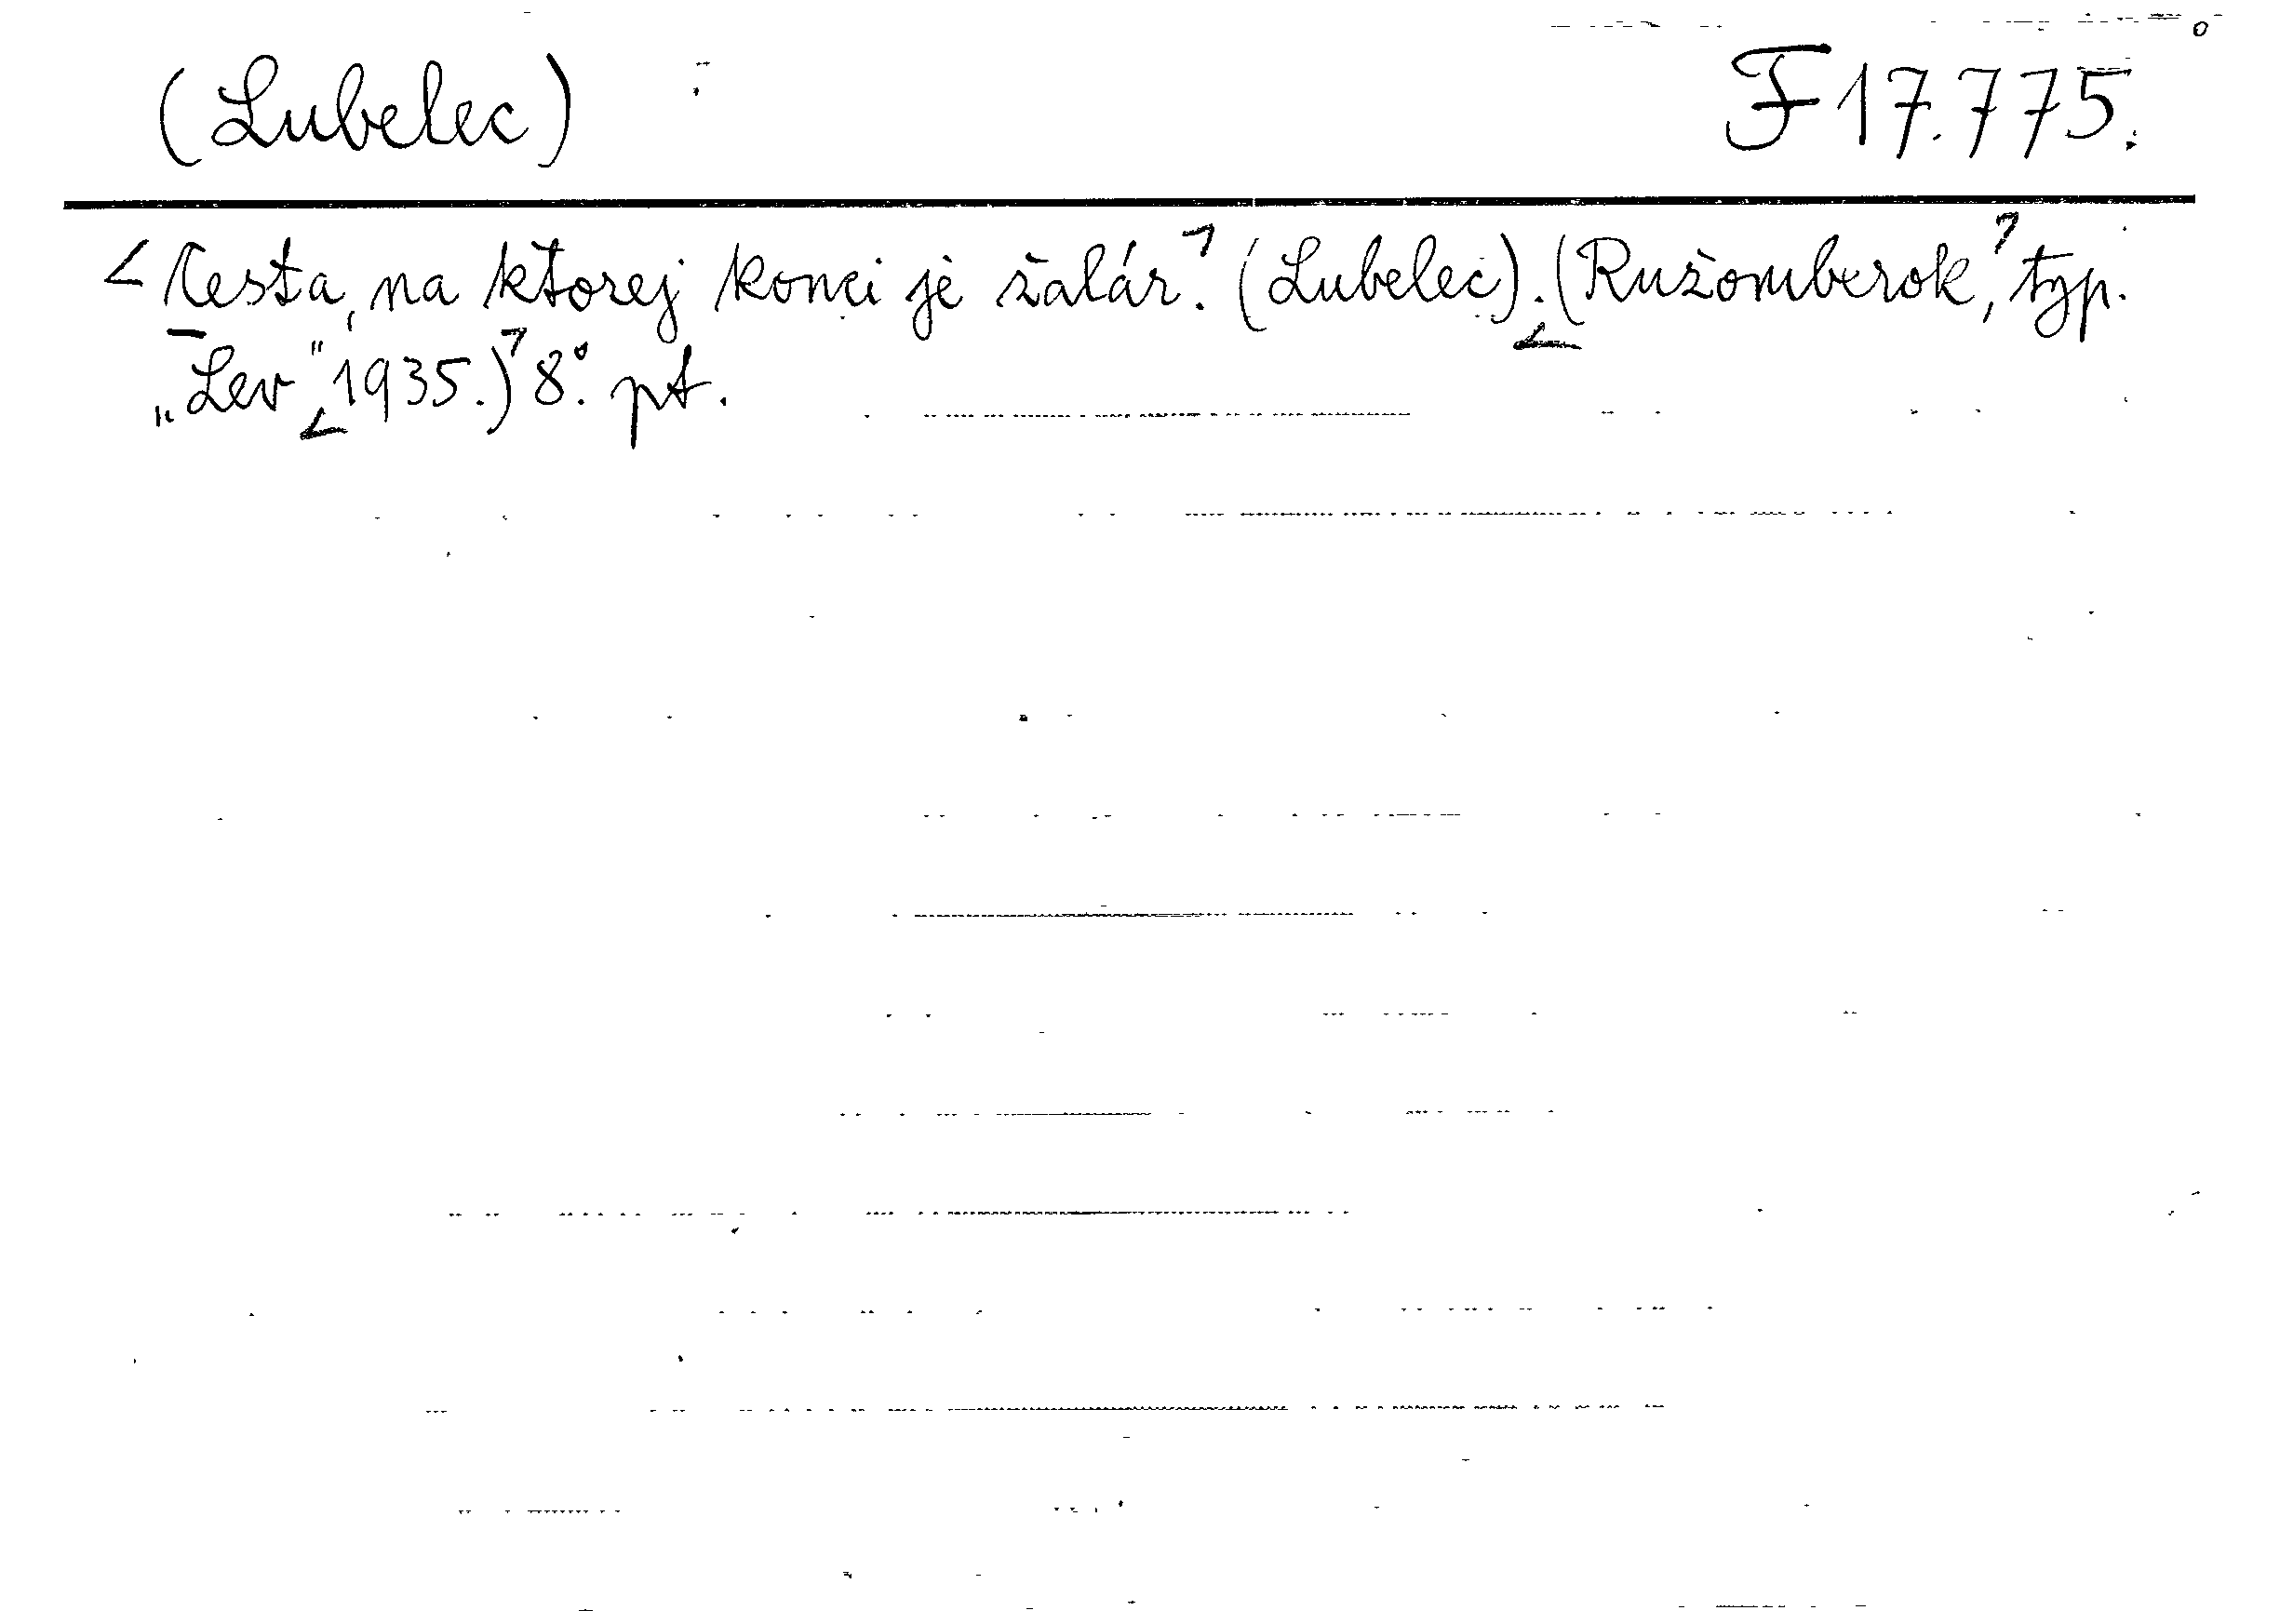 (Lubelec) F 17.775.
Cesta, na ktorej konci je žalár. (Lubelec). (Ružomberok, typ.
„Lev" 1935.) 8°. pt.